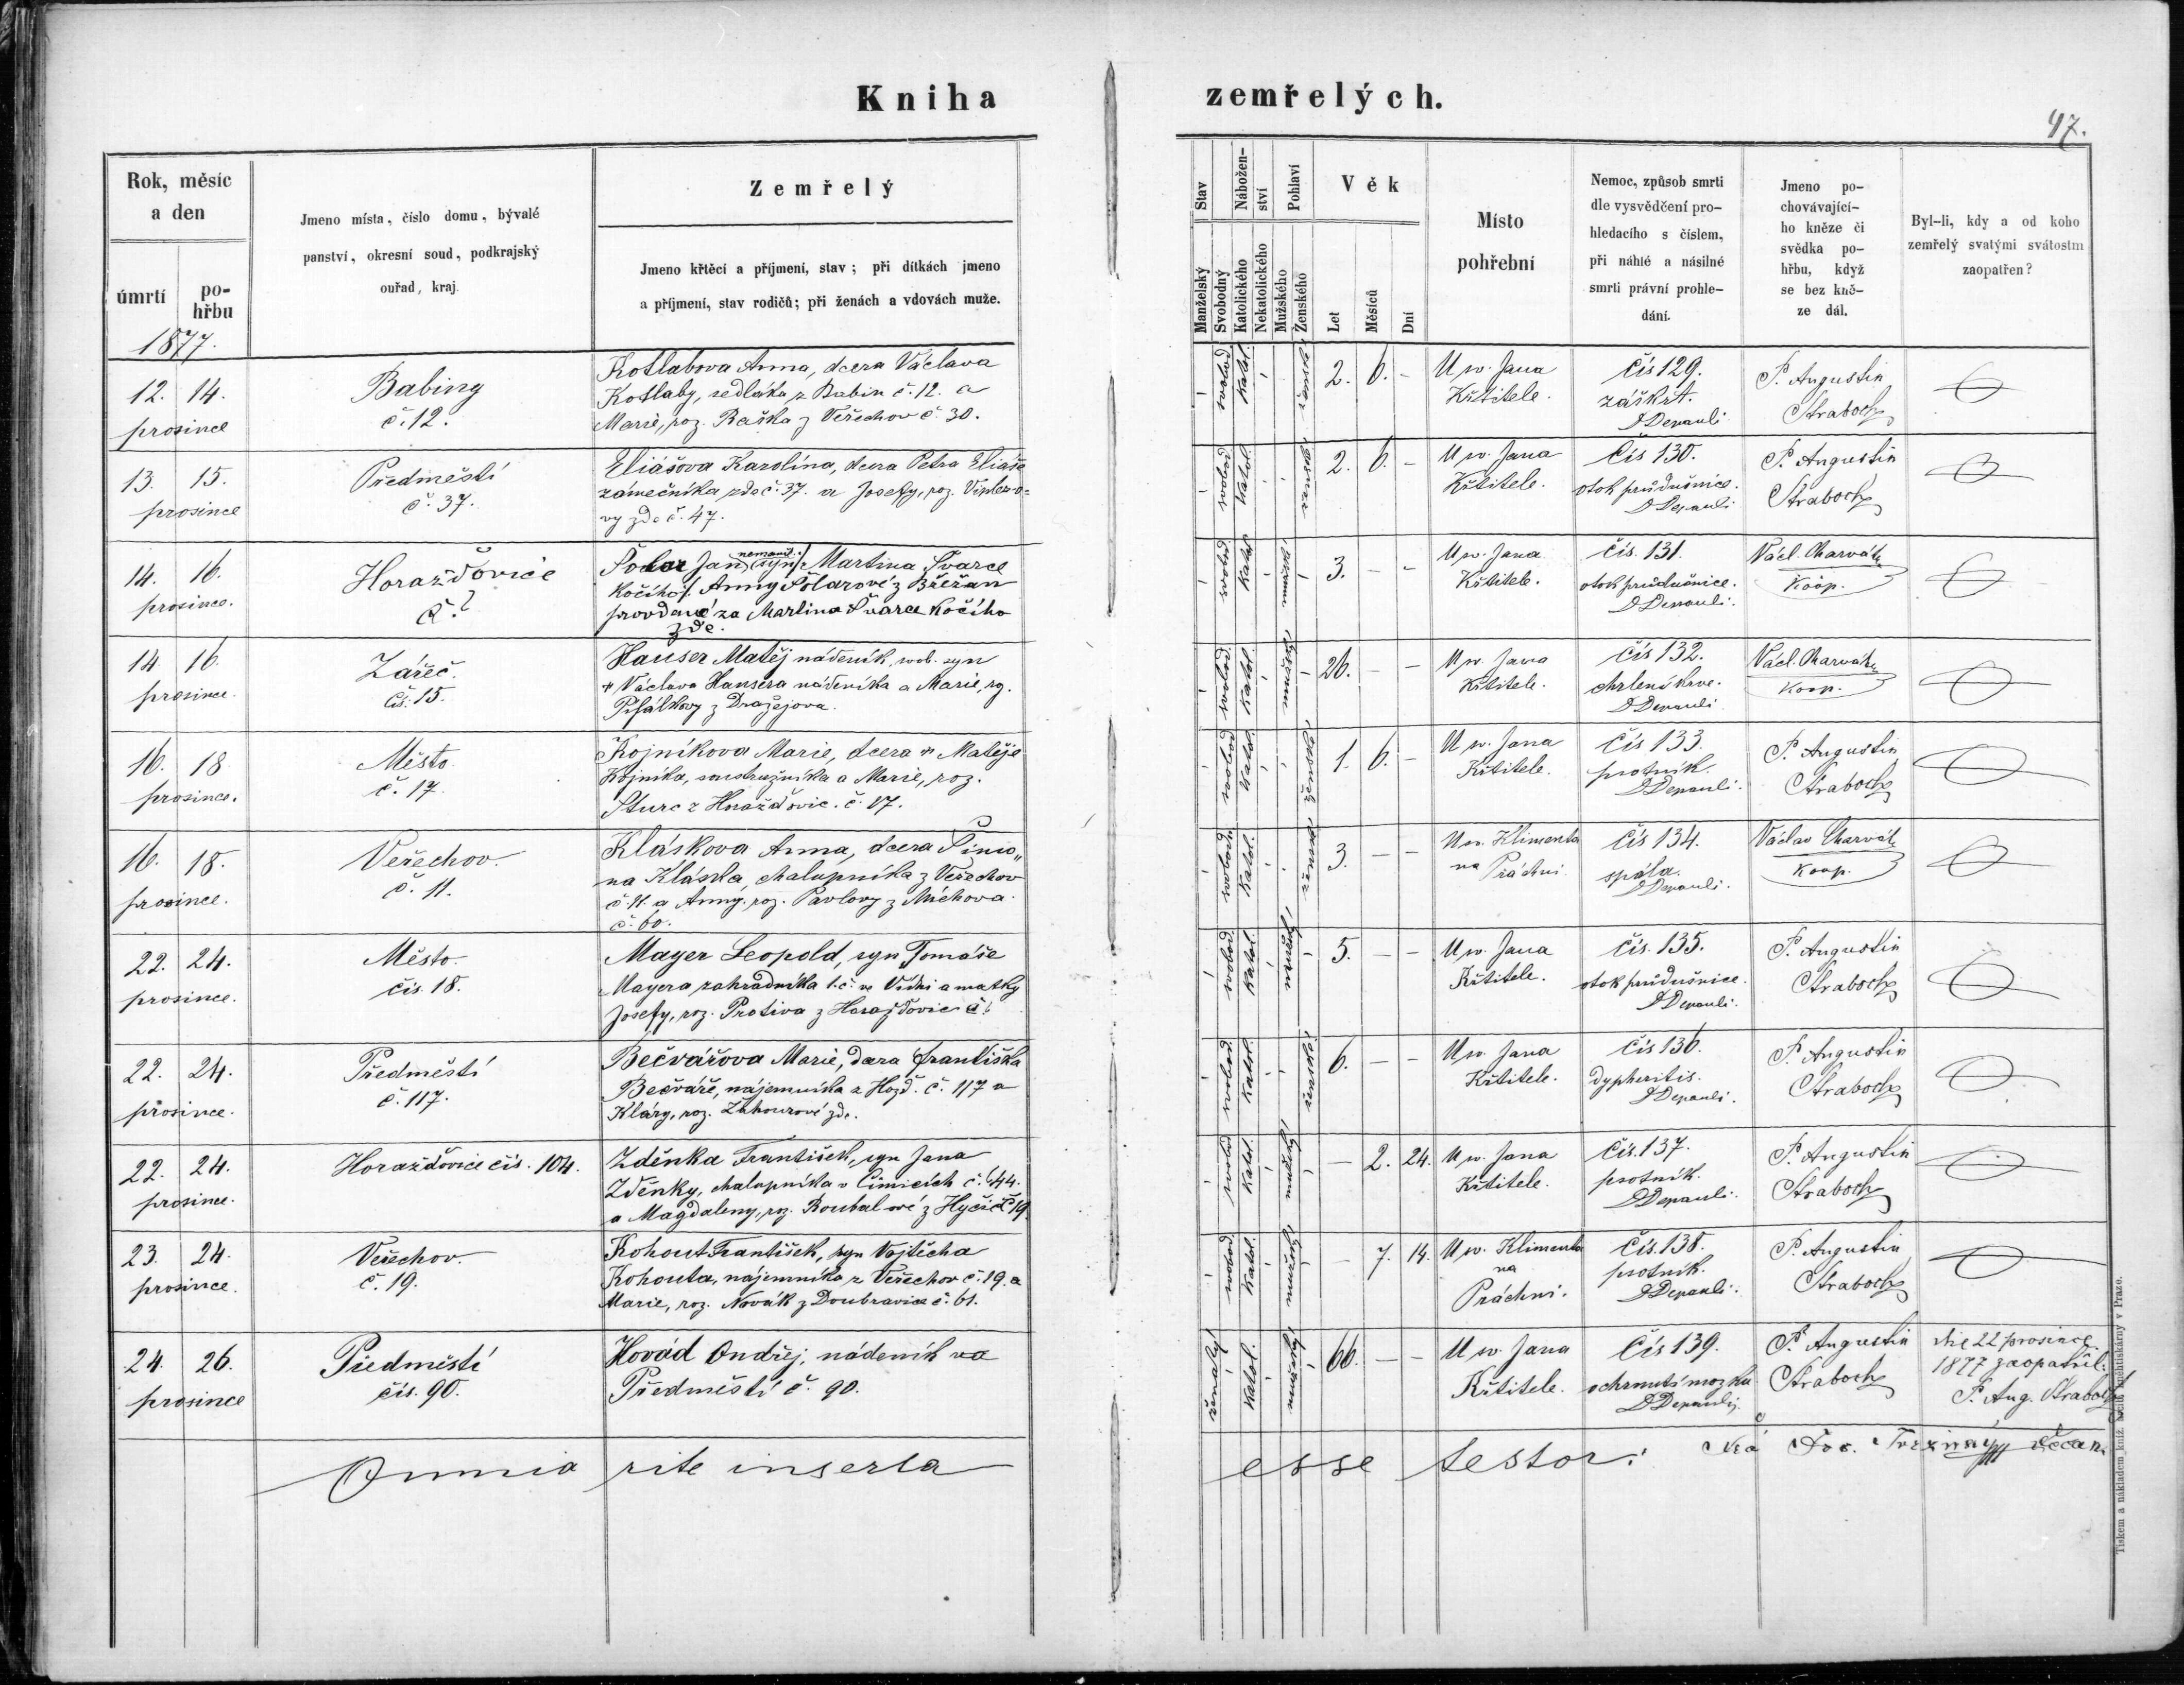 Kniha zemřelých.
47.
Rok, měsíc
a den
úmrtí
po-
hřbu
Jmeno místa, číslo domu, bývalé
panství, okresní soud, podkrajský
ouřad, kraj.
Zemřelý
Jmeno křtěcí a příjmení, stav; při dítkách jmeno
a příjmení, stav rodičů; při ženách a vdovách muže.
Stav
Manželský
Svobodný
Nábožen-
ství
Katolického
Nekatolického
Pohlaví
Mužského
Ženského
Věk
Let
Měsíců
Dní
Místo
pohřební
Nemoc, způsob smrti
dle vysvědčení pro-
hledacího s číslem,
při náhlé a násilné
smrti právní prohle-
dání.
Jmeno po-
chovávající-
ho kněze či
svědka po-
hřbu, když
se bez kně-
ze dál.
Byl-li, kdy a od koho
zemřelý svatými svátostmi
zaopatřen?
1877.
12. 14.
prosince
Babiny
č. 12.
Kotlabova Anna, dcera Václava
Kotlaby, sedláka z Babin č. 12. a
Marie, roz. Raška z Veřechov č. 30.
svobod. katol. ženské 2. 6. -
U sv. Jana
Křtitele.
Čís 129.
záškrt.
D Depauli
P. Augustin
Straboch
13. 15.
prosince
Předměstí
č. 37.
Eliášova Karolina, dcera Petra Eliáše
zámečníka zde č. 37. a Josefy, roz.
vy zde č. 47.
svobod. katol. ženské 2. 6. -
U sv. Jana
Křtitele.
Čís 130.
otok průdušnice.
D Depauli
P. Augustin
Straboch
14. 16.
prosince.
Horažďovice
č ?
Šolar Jan nemanž. syn Martina Švarce
kočího Anny Šolarové z Břežan
provdané za Martina Švarce kočího
zde.
svobod. katol. mužské 3. - -
U sv. Jana
Křtitele.
Čís. 131.
otok průdušnice.
D Depauli.
Václ. Charvát
Koop.
14. 16.
prosince.
Zářeč.
Čís. 15.
Hauser Matěj nádeník, svob. syn
Václava Hausera nádeníka a Marie, roz.
z Dražejova.
svobod. katol. mužské 26. - -
U sv. Jana
Křtitele.
Čís 132.
chrlení krve.
D Depauli
Václ. Charvát
Koop.
16. 18.
prosince.
Město.
č. 17.
Kojníkova Marie, dcera Matěje
Kojníka, soustružníka a Marie, roz.
Sturc z Horažďovic. č. 17.
svobod. katol. ženské 1. 6. -
U sv. Jana
Křtitele.
Čís 133.
psotník.
D Depauli.
P. Augustin
Straboch
16. 18.
prosince.
Veřechov.
č. 11.
Kláskova Anna, dcera Šimo„
na Kláska, chalupníka z Veřechov
č. 11. a Anny, roz. Pavlovy z Míchova
č. 60.
svobod. katol. ženské 3. - -
U sv. Klimenta
na Práchni
Čís 134.
spála.
D Depauli.
Václav Charvát
Koop.
22. 24.
prosince.
Město.
čís. 18.
Mayer Leopold, syn Tomáše
Mayera zahradníka t. č. ve Vídni a matky
Josefy, roz. Protiva z Horažďovic č ?
svobod. katol. mužské 5. - -
U sv. Jana
Křtitele.
Čís. 135.
otok průdušnice.
D Depauli.
P. Augustin
Straboch
22. 24.
prosince.
Předměstí
č. 117.
Bečvářova Marie, dcera Františka
Bečváře, nájemníka z Hožď. č. 117 a
Kláry, roz. Záhourové zde.
svobod. katol. ženské 6. - -
U sv. Jana
Křtitele.
Čís 136.
dypheritis.
D Depauli.
P. Augustin
Straboch
22. 24.
prosince.
Horažďovice čís. 104.
Zděnka František, syn Jana
Zděnky, chalupníka v Čimicích č. 44.
a Magdaleny, roz. Roubalové z Hyčic č 19.
svobod. katol. mužský - 2. 24.
U sv. Jana
Křtitele.
Čís. 137.
psotník.
D Depauli.
P. Augustin
Straboch
23. 24.
prosince.
Veřechov.
č. 19.
Kohout František, syn Vojtěcha
Kohouta, nájemníka z Veřechov č. 19. a
Marie, roz. Novák z Doubravice č. 61.
svobod. katol. mužské - 7. 14.
U sv. Klimenta
na
Práchni.
Čís. 138.
psotník.
D Depauli.
P. Augustin
Straboch
24. 26.
prosince
Předměstí
čís. 90.
Hovád Ondřej, nádeník na
Předměstí č. 90.
ženatý katol. mužské 66. - -
U sv. Jana
Křtitele.
Čís 139.
ochrnutí mozku
D Depauli
P. Augustin
Straboch
dne 22 prosince
1877 zaopatřil:
P. Aug. Straboch
Omnia rite inserta esse testor: děcan.
Tiskem a nákladem kníž. knihtiskárny v Praze.